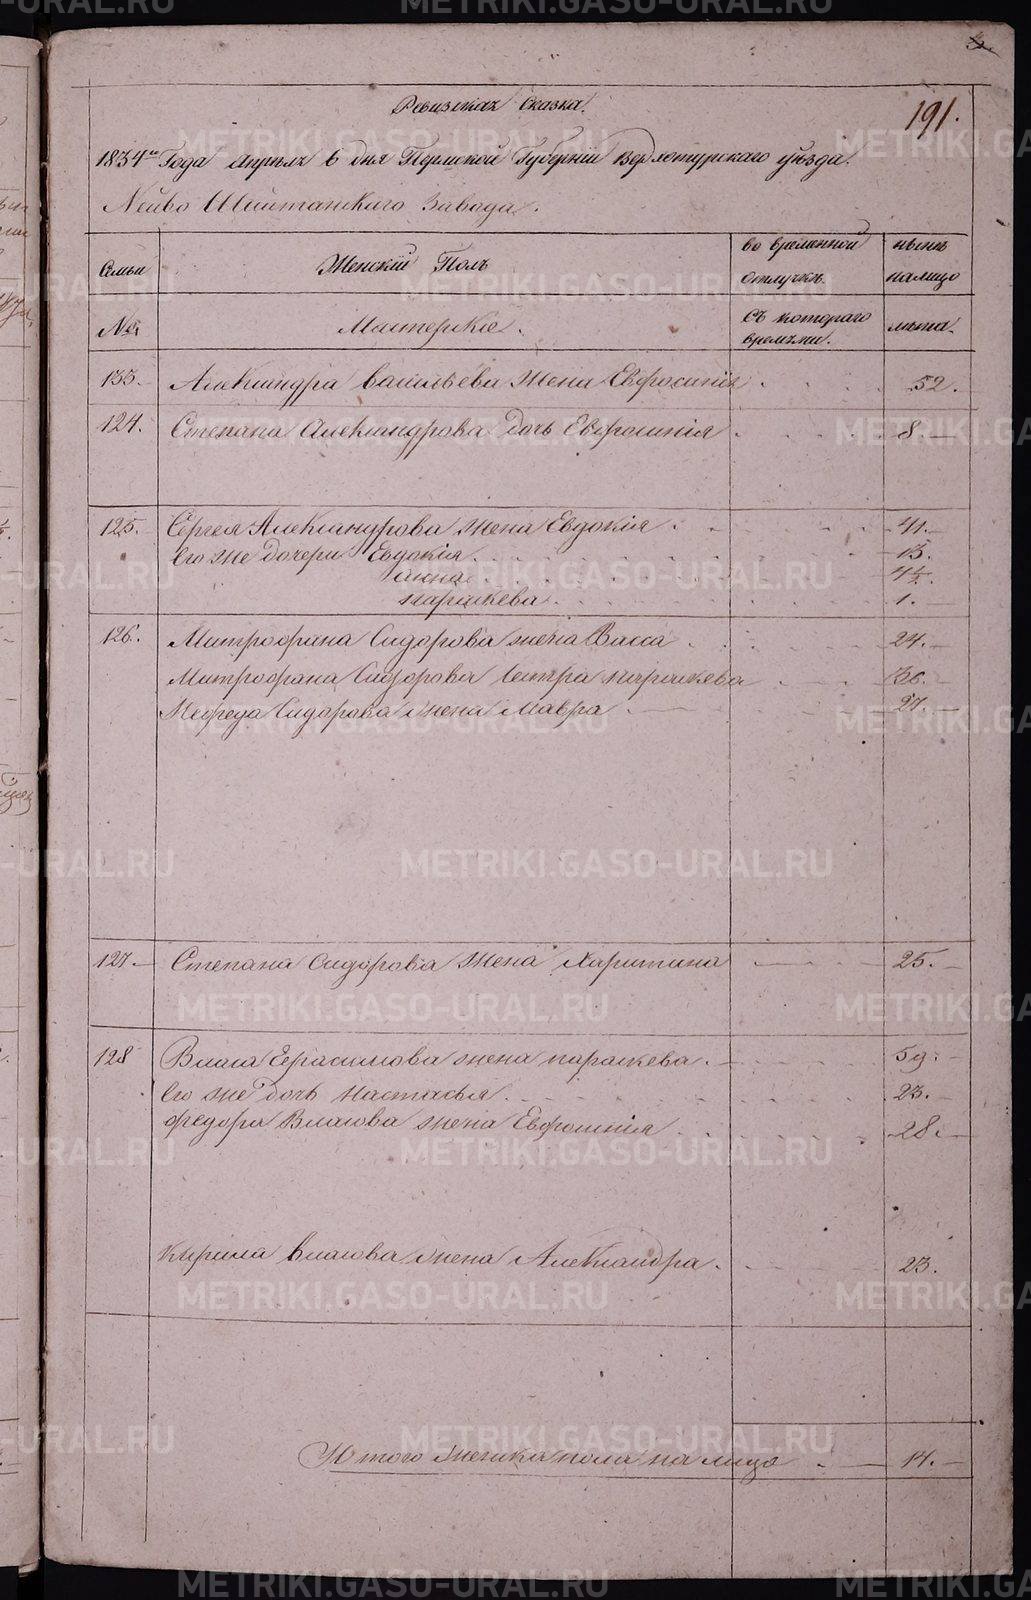 191.
Ревизская Сказка.
1834го Года Апреля 6 дня Пермской Губернии Верхотурскаго уезда.
Нейво Шайтанскаго Завода.
Семьи
Женский Полъ
во временной отлучкѣ
нынѣ налицо
№
Мастерские.
Съ котораго времѣни.
лѣта.
133. Александра васильева жена Евфросиния 52.
124. Степана Александрова дочь Евфросиния 8.
125. Сергея Александрова жена Евдокия 41.
Его же дочери Евдокия 13.
анна 4½.
параскева 1.
126. Митрофана Сидорова жена Васса 24.
Митрофана Сидорова Сестра параскева 36.
Сидорова жена Мавра 27.
127. Степана Сидорова жена Харитина 25.
128 Власа Герасимова жена параскева. 59.
Его же дочь настасья. 23.
Федора Власова жена Евфросиния 28.
кирила власова жена Александра. 23.
Итого женска пола на лицо 14.
METRIKI.GASO-URAL.RU